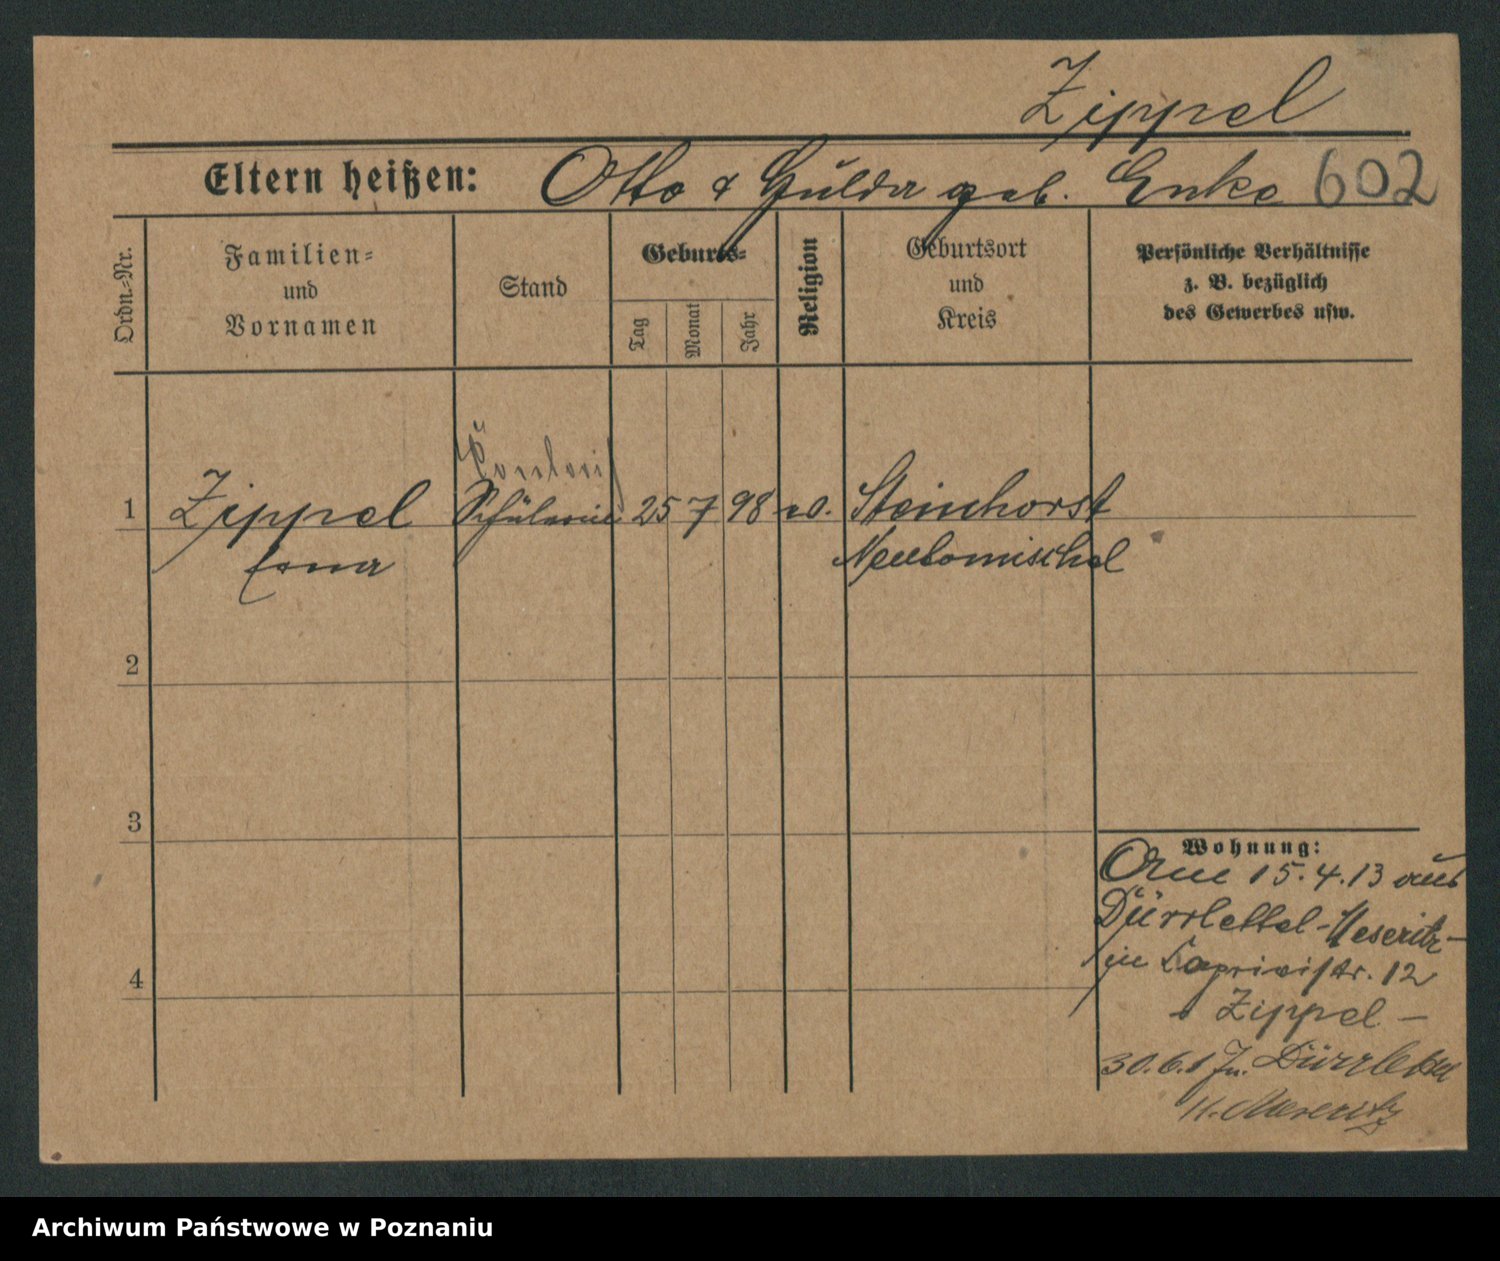 Zippel
Eltern heißen: Otto & Hulda geb. Enke 602
Ordn.-Nr.
Familien-
und
Vornamen
Stand
Geburts-
Tag
Monat
Jahr
Religion
Geburtsort
und
Kreis
Persönliche Verhältnisse
z. B. bezüglich
des Gewerbes usw.
1 Zippel Schülerin 25 7 98 ev. Steinhorst
Erna Neutomischel
2
3
4
Wohnung:
Am 15.4.13 aus
Dürrlettel-Meseritz-
in Caprivistr. 12
b Zippel -
30.6.17 n. Dürrlettel
K. Meseritz
Archiwum Państwowe w Poznaniu